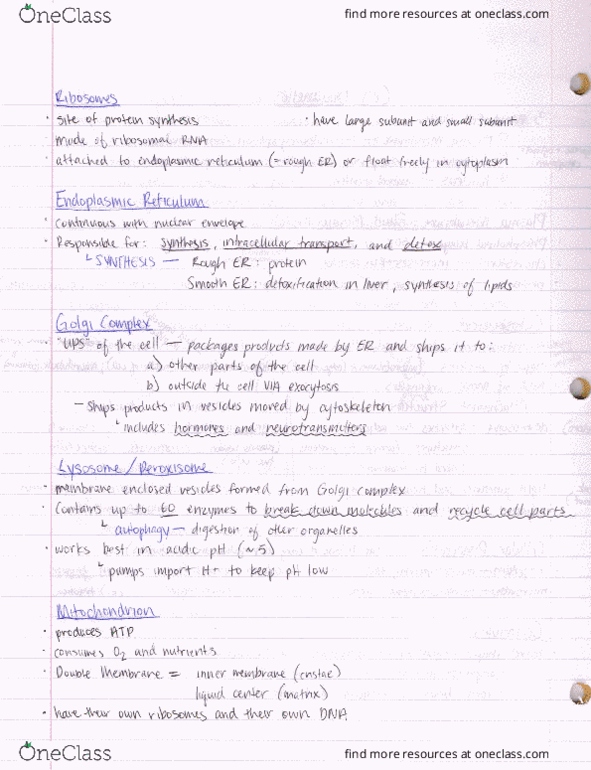 OneClass find more resources at oneclass.com
Ribosomes
· site of protein synthesis · have large subunit and small subunit
· made of ribosomal RNA
· attached to endoplasmic reticulum (= rough ER) or float freely in cytoplasm
Endoplasmic Reticulum
· continuous with nuclear envelope
· Responsible for: synthesis, intracellular transport, and detox
↳ SYNTHESIS — Rough ER: protein
Smooth ER: detoxification in liver, synthesis of lipids
Golgi Complex
· "UPS" of the cell — packages products made by ER and ships it to:
a) other parts of the cell
b) outside the cell VIA exocytosis
— Ships products in vesicles moved by cytoskeleton
↳ includes hormones and neurotransmitters
Lysosome / Peroxisome
· membrane enclosed vesicles formed from Golgi complex
· Contains up to 60 enzymes to break down molecules and recycle cell parts
↳ autophagy — digestion of other organelles
· works best in acidic pH (~5)
↳ pumps import H+ to keep pH low
Mitochondrion
· produces ATP
· consumes O2 and nutrients
· Double Membrane = inner membrane (cristae)
liquid center (matrix)
· have their own ribosomes and their own DNA
OneClass find more resources at oneclass.com